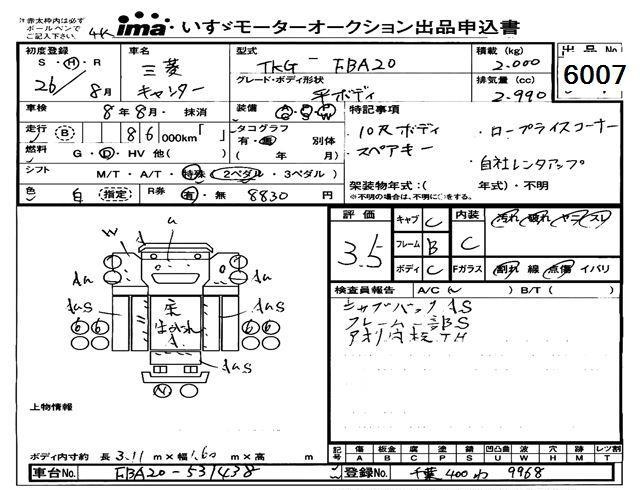 ※赤太枠内は必ず
ボールペンで
ご記入下さい。
4K ima いすゞモーターオークション出品申込書
初度登録 車名 型式 積載 (kg) 出品No.
S・H・R 三菱 TKG-FBA20 2.000 6007
26 / 8月 キャンター グレード・ボディ形状 平ボディ 排気量 (cc) 2.990
車検 8年8月・抹消 装備 特記事項
走行 B 86 000km「 」 タコグラフ 有・無 別体 10尺ボディ ・ロープライスコーナー
燃料 G・D・HV 他( ) ( 年 月) スペアキー ・自社レンタアップ
シフト M/T・A/T・特殊(2ペダル・3ペダル) 架装物年式:( 年式)・不明
色 白 指定 R券 有・無 8830 円 ※不明の場合は、不明に○をする。
評価 キャブ C 内装 汚れ 破れ ヤニ スレ
3.5 フレーム B C
ボディ C Fガラス 割れ 線 点傷 イバリ
検査員報告 A/C ( ) B/T ( )
W u
A
Au Au
AuS AuS
6 6 6 6
AuS
N
フレーム一部S
アオリ内板TH
上物情報
ボディ内寸約 長 3.11 m×幅 1.60 m×高 m
記号 傷 板金 腐 塗 錆 凹凸曲 波 穴 跡 レツ割
A B C P S U W H M T
車台No. FBA20-531438 登録No. 千葉 400 わ 9968